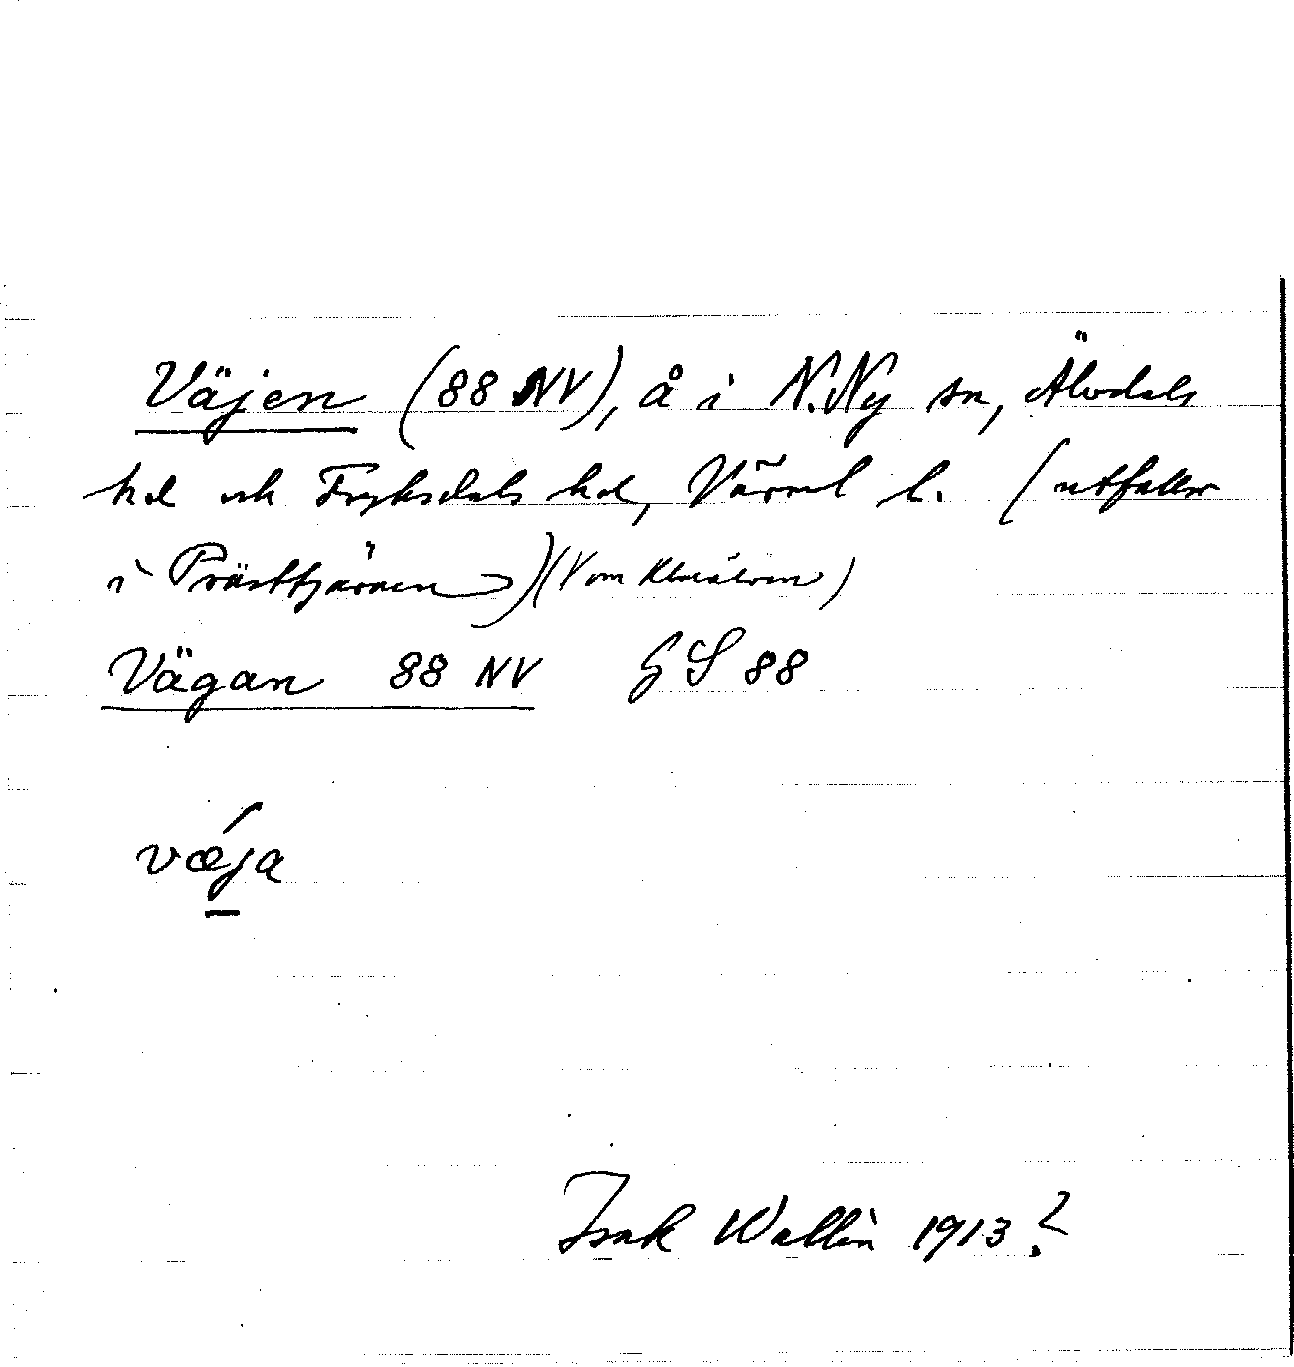 Väjen (88 NV), å i N. Ny sn, Älvdals
hd och Fryksdals hd, Värml l. (utfaller
i Prästtjärnen) (V om Klarälven)
Vägan 88 NV GS 88
vǽja
Isak Wallin 1913?